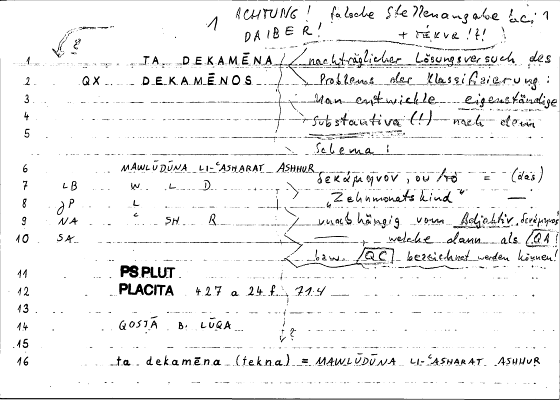 1 ACHTUNG! falsche Stellenangabe bei
DAIBER! + !!!
1 TA. DEKAMĒNA nachträglicher Lösungsversuch des
2 QX DEKAMĒNOS Problems der Klassifizierung:
3 Man entwickle eigenständige
4 Substantiva (!) nach dem
5 Schema:
6 MAWLŪDŪNA LI-ʿASHARAT ASHHUR
7 LB W L D δεκάμηνον, ου/τό = (das)
8 JP L "Zehnmonatskind" —
9 NA ʿ SH R unabhängig vom Adjektiv, δεκάμηνος
10 SA. , welche dann als QA!
bzw. QC bezeichnet werden können!
11 PS PLUT
12 PLACITA 427 a 24 f. 714
13
14 QOSṬĀ B. LŪQA ?
15
16 ta dekamēna (tekna) = MAWLŪDŪNA LI-ʿASHARAT ASHHUR